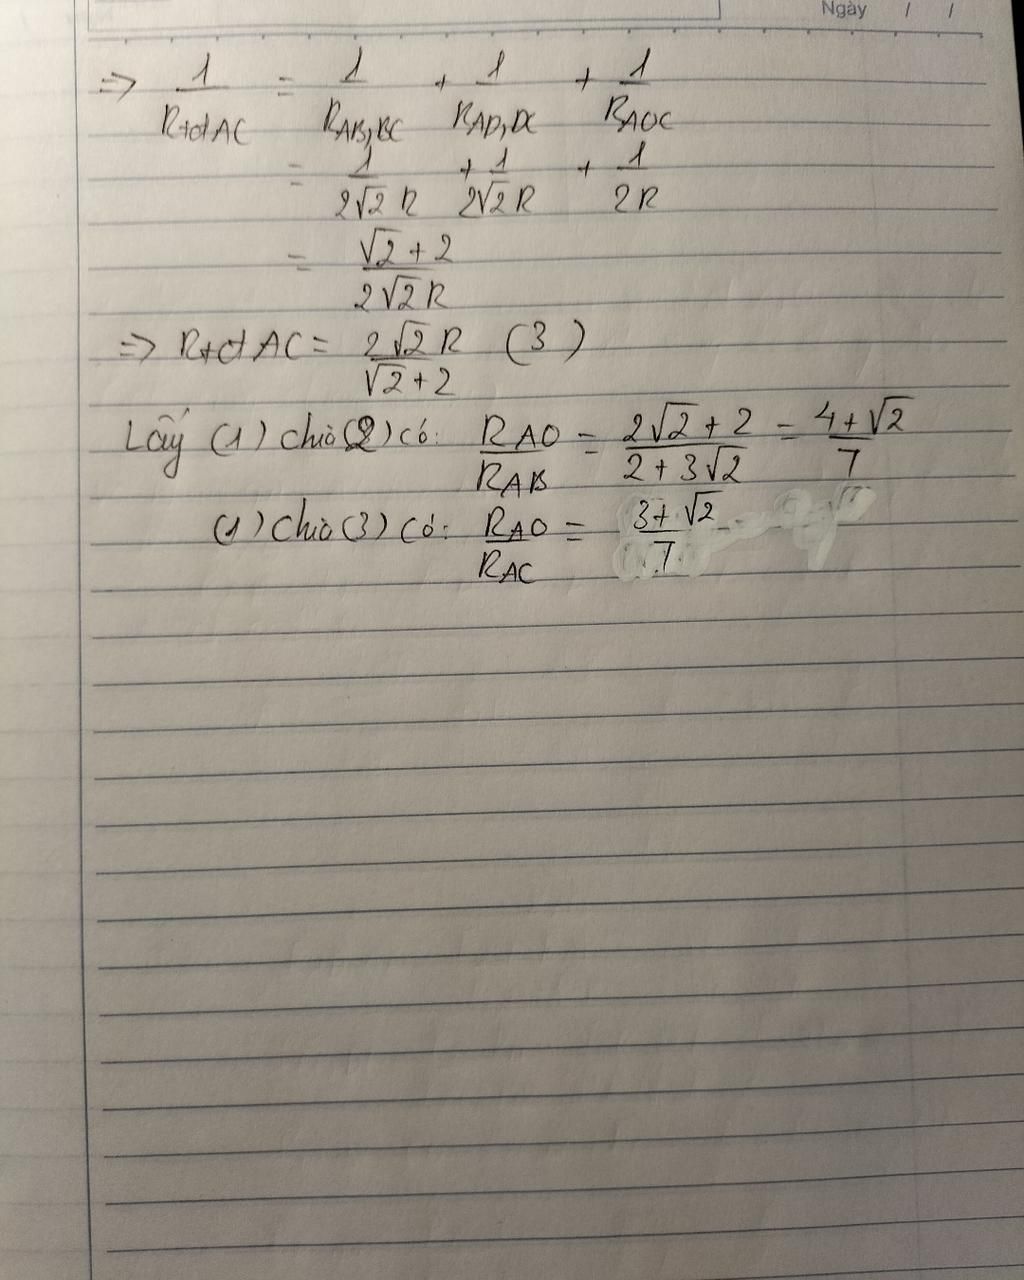 Ngày / /
=> 1/R_tđ AC = 1/R_AB,BC + 1/R_AD,DC + 1/R_AOC
= 1/2√2 R + 1/2√2 R + 1/2R
= √2 + 2/2√2 R
=> R_tđ AC = 2√2 R/√2 + 2 (3)
Lấy (1) chia (2) có: R_AO/R_AB = 2√2 + 2/2 + 3√2 = 4 + √2/7
(1) chia (3) có: R_AO/R_AC = 3 + √2/7